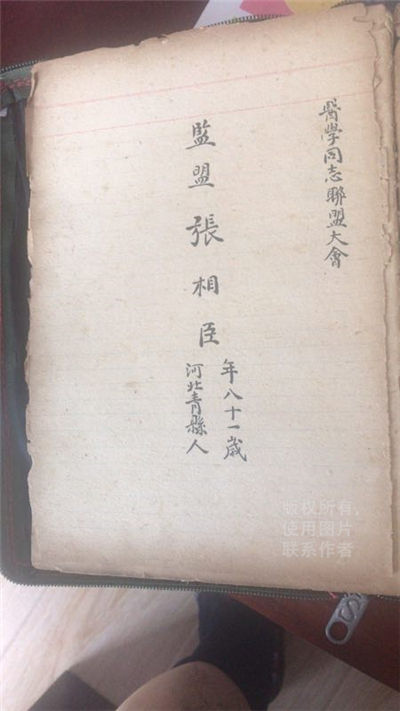 醫學同志聯盟大會
監盟張相臣
年八十一歲
河北青縣人
版权所有，
使用图片
联系作者